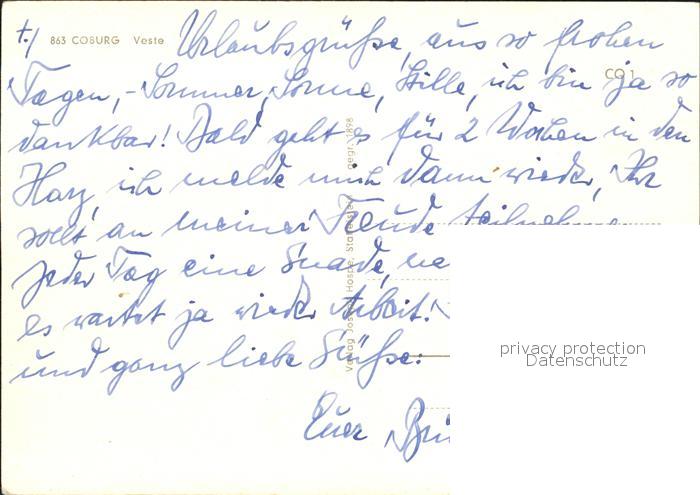 863 COBURG Veste Urlaubsgrüße, aus so frohen
CO 1
Tagen, - Sommer, Sonne, Stille, ich bin ja so
dankbar! Bald geht es für 2 Wochen in den
Harz, ich melde mich dann wieder, Ihr
sollt an meiner Freude teilnehmen
Jeder Tag eine Gnade,
es wartet ja wieder Arbeit!
und ganz liebe Grüße:
Euer
Verlag Jos. Hospe, Staffelstein gegr. 1898
privacy protection
Datenschutz